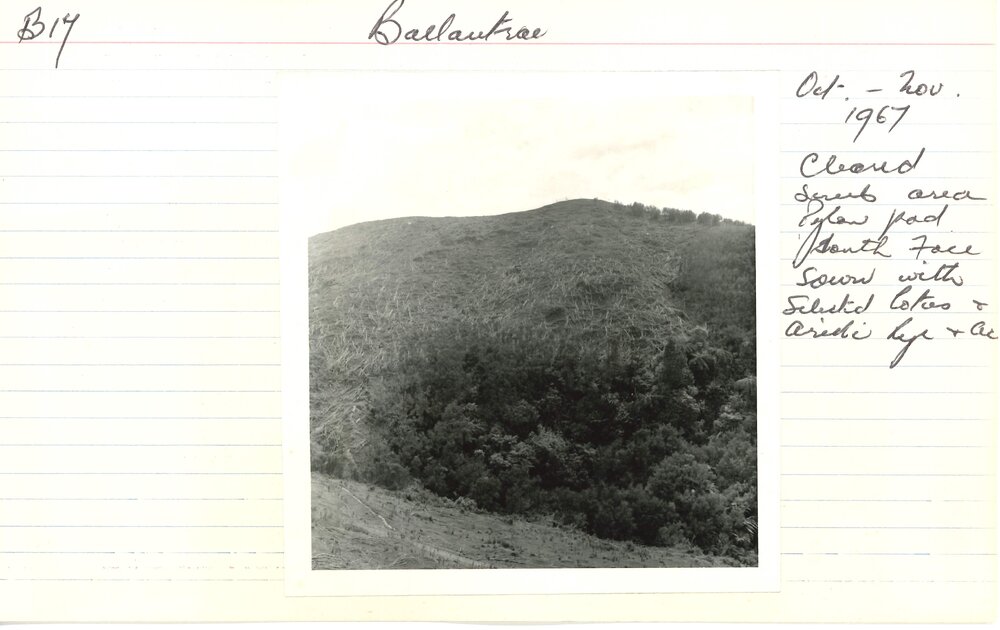 B17
Ballantrae
Oct. - Nov.
1967
Cleared
Scrub area
Pylon pad
South Face
Sown with
Selected lotus &
Ariki Rye &